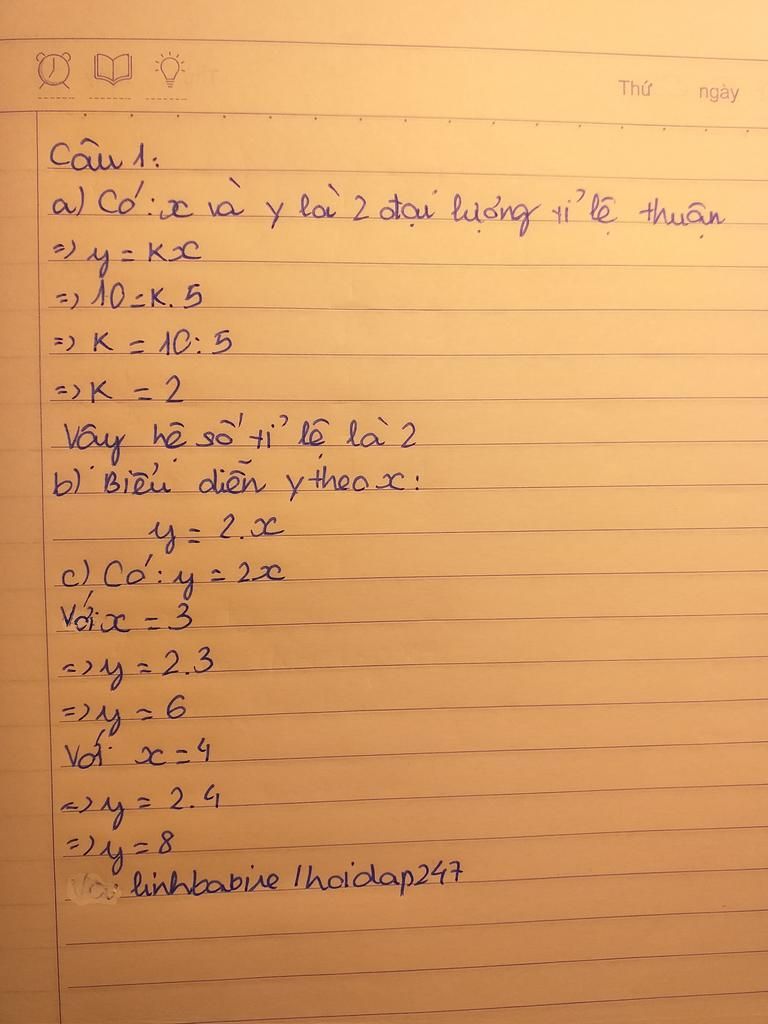 Thứ ngày
Câu 1:
a) Có: x và y là 2 đại lượng tỉ lệ thuận
=> y = kx
=> 10 = k. 5
=> k = 10: 5
=> k = 2
Vậy hệ số tỉ lệ là 2
b) Biểu diễn y theo x:
y = 2.x
c) Có: y = 2x
Với x = 3
=> y = 2.3
=> y = 6
Với x = 4
=> y = 2.4
=> y = 8
linhbabire / hoidap247